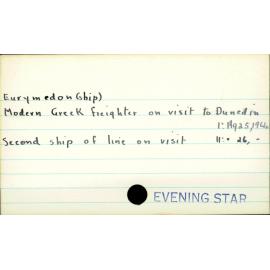 Eurymedon (ship)
Modern Greek freighter on visit to Dunedin
Second ship of line on visit
EVENING STAR